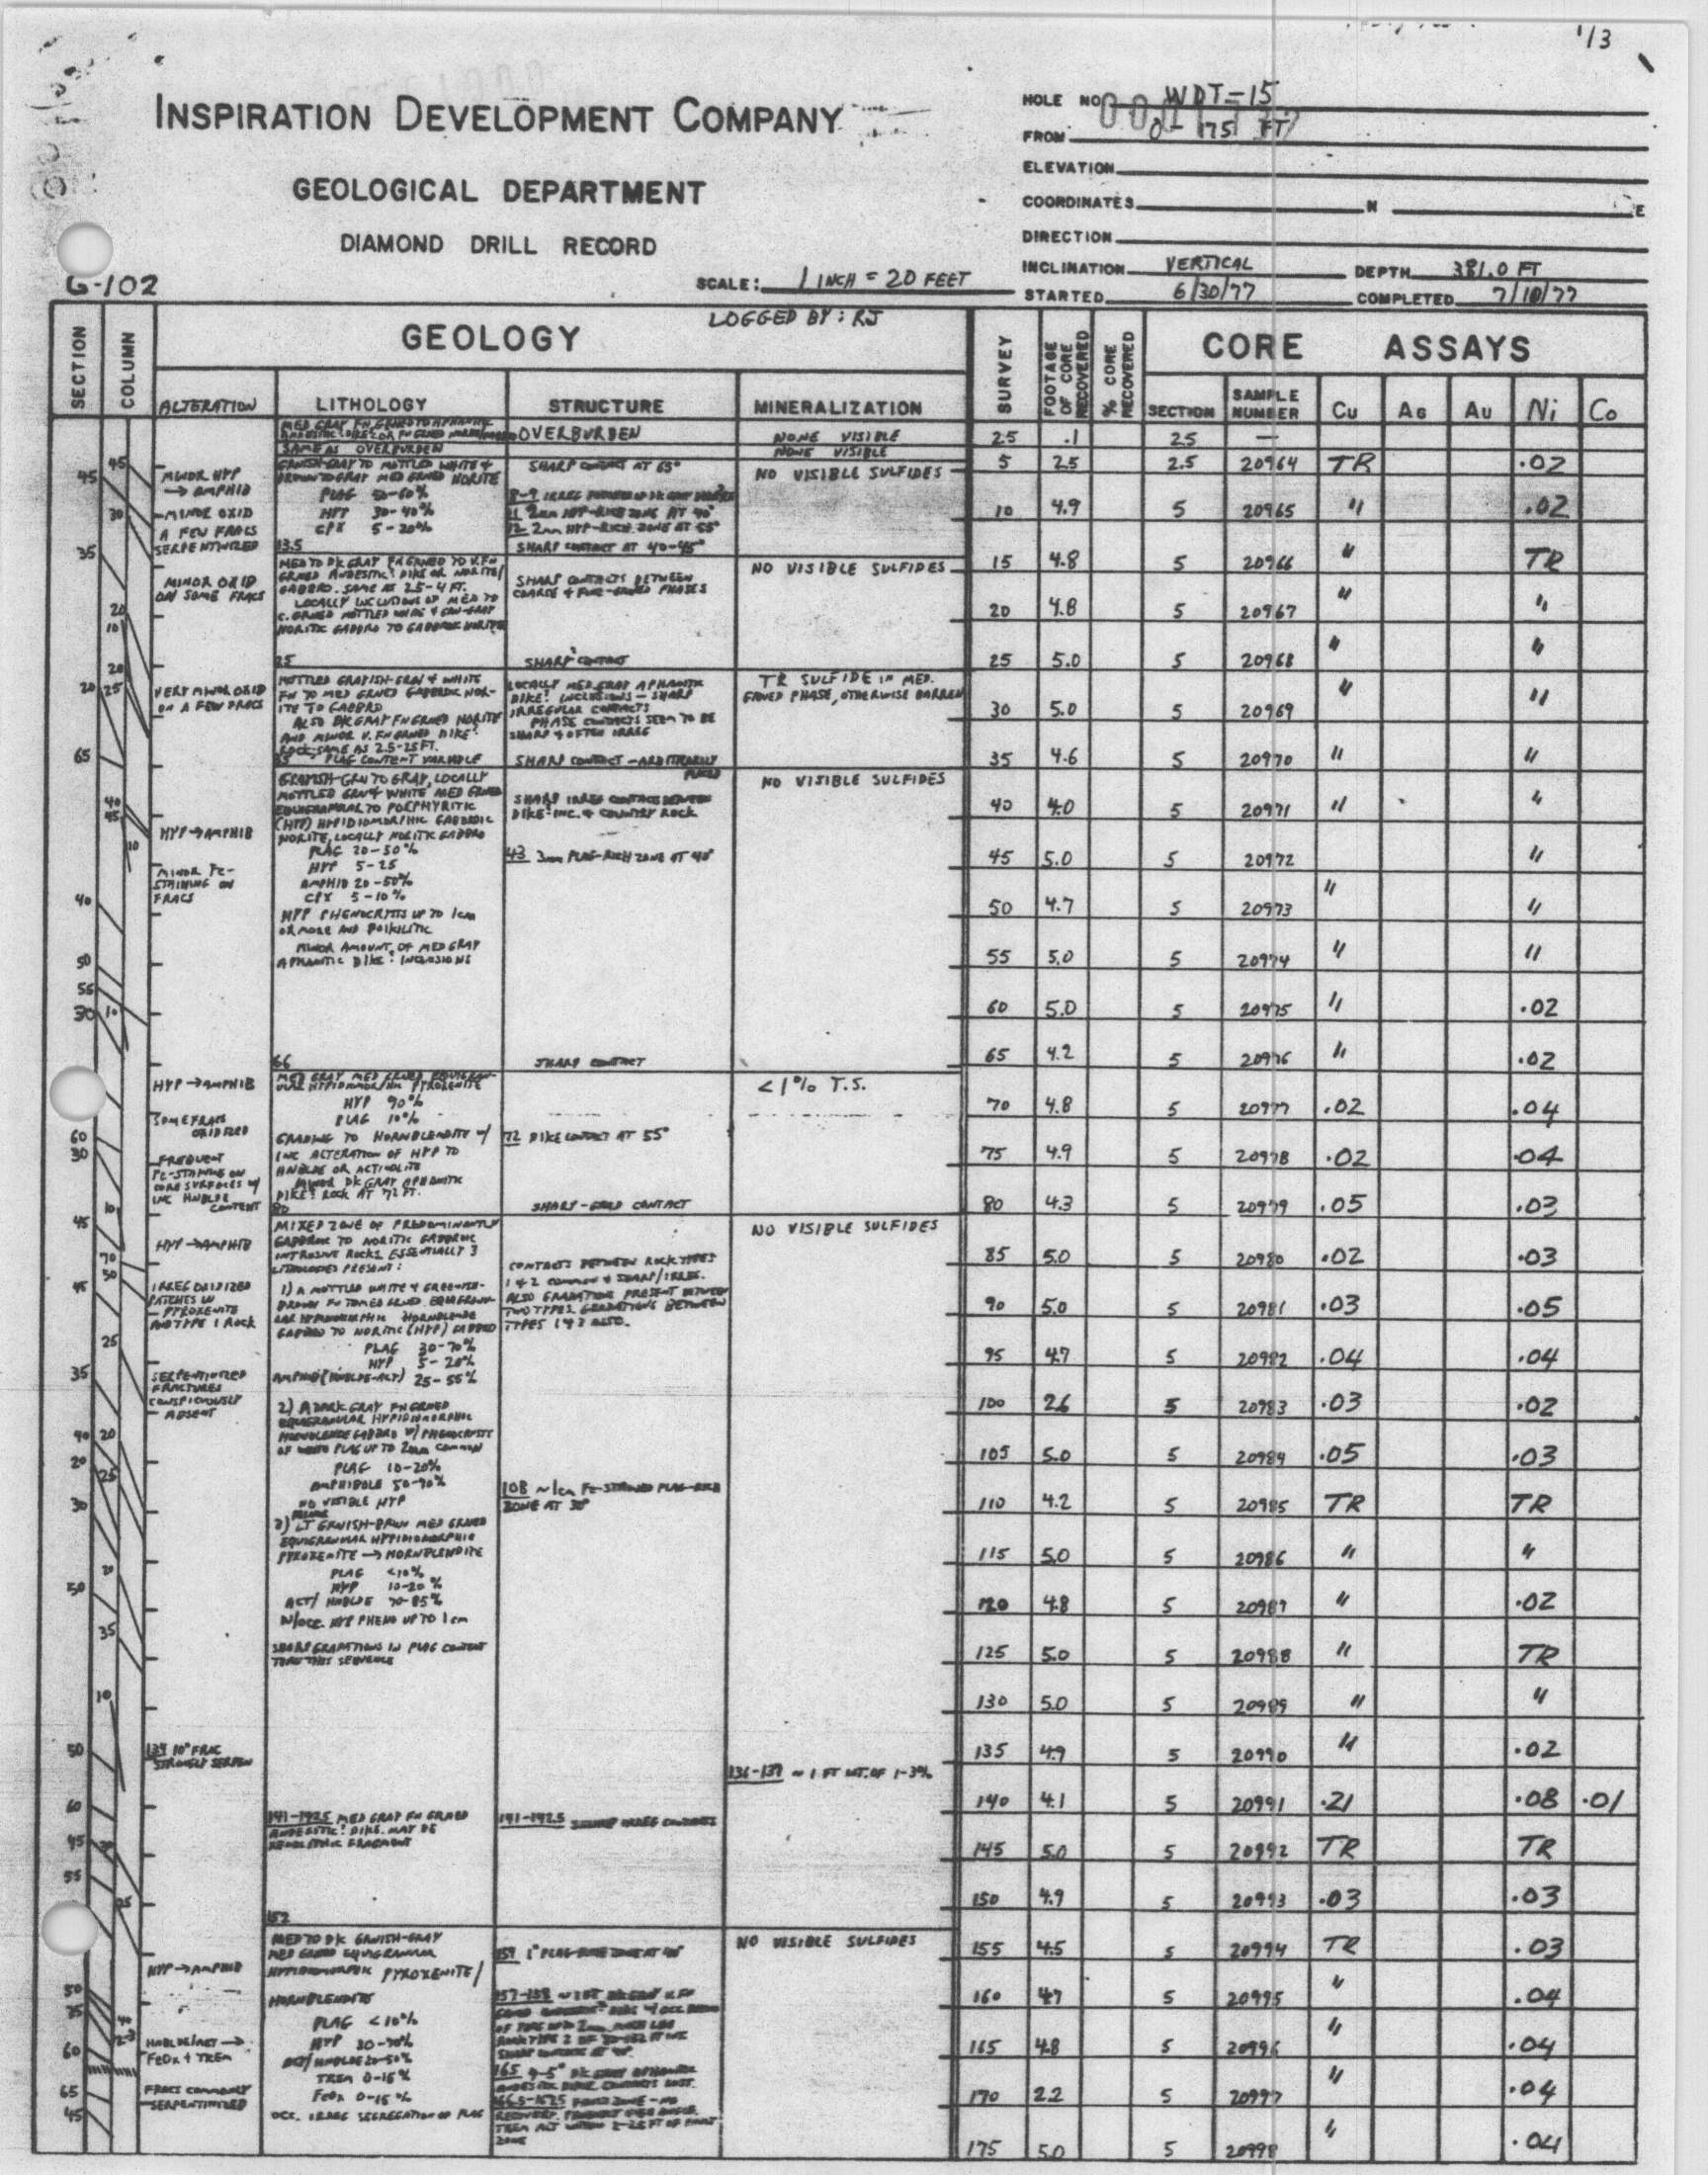 1/3
INSPIRATION DEVELOPMENT COMPANY
GEOLOGICAL DEPARTMENT
DIAMOND DRILL RECORD
G-102
SCALE: 1 INCH = 20 FEET
HOLE NO. WDT-15
FROM 0 - 175 FT
ELEVATION
COORDINATES N E
DIRECTION
INCLINATION VERTICAL DEPTH 381.0 FT
STARTED 6/30/77 COMPLETED 7/10/77
LOGGED BY: RJ
SECTION COLUMN GEOLOGY SURVEY FOOTAGE OF CORE RECOVERED % CORE RECOVERED CORE ASSAYS
ALTERATION LITHOLOGY STRUCTURE MINERALIZATION SECTION SAMPLE NUMBER Cu AG AU Ni Co
OVERBURDEN
NONE VISIBLE
SAME AS OVERBURDEN
NONE VISIBLE
MINOR HYP
→ AMPHIB
MINOR OXID
A FEW FRACS
SERPENTINIZED
GRNISH-GRAY TO MOTTLED WHITE &
BROWN TO GRAY MED GRNED NORITE
PLAG 50-60%
HYP 30-40%
CPX 5-20%
13.5
SHARP CONTACT AT 65°
12 2mm HYP-RICH ZONE AT 55°
SHARP CONTACT AT 40-45°
NO VISIBLE SULFIDES
MINOR OXID
ON SOME FRACS
MED TO DK GRAY FN GRNED TO V.FN
GRNED ANDESITIC? DIKE OR NORITE/
GABBRO. SAME AS 2.5-4 FT.
LOCALLY INCLUSIONS OF MED TO
C. GRNED MOTTLED WHITE & GRN-GRAY
NORITIC GABBRO TO GABBROIC NORITE
25
SHARP CONTACTS BETWEEN
COARSE & FINE-GRNED PHASES
SHARP CONTACT
NO VISIBLE SULFIDES
VERY MINOR OXID
ON A FEW FRACS
MOTTLED GRAYISH-GRN & WHITE
FN TO MED GRNED GABBROIC NOR-
ITE TO GABBRO
ALSO DK GRAY FN GRNED NORITE
AND MINOR V. FN GRNED DIKE?
ROCK SAME AS 2.5-25 FT.
35 PLAG CONTENT VARIABLE
LOCALLY MED GRAY APHANITIC
DIKE? INCLUSIONS - SHARP
IRREGULAR CONTACTS
PHASE CONTACTS SEEM TO BE
SHARP & OFTEN IRREG
SHARP CONTACT - ARBITRARILY
PLACED
TR SULFIDE IN MED.
GRNED PHASE, OTHERWISE BARREN
HYP → AMPHIB
MINOR FE-
STAINING ON
FRACS
GRAYISH-GRN TO GRAY, LOCALLY
MOTTLED GRN & WHITE MED GRNED
EQUIGRANULAR TO PORPHYRITIC
(HYP) HYPIDIOMORPHIC GABBROIC
NORITE, LOCALLY NORITIC GABBRO
PLAG 20-50%
HYP 5-25
AMPHIB 20-50%
CPX 5-10%
HYP PHENOCRYSTS UP TO 1cm
OR MORE AND POIKILITIC
MINOR AMOUNT OF MED GRAY
APHANITIC DIKE? INCLUSIONS
66
SHARP IRREG CONTACTS BETWEEN
DIKE-INC. & COUNTRY ROCK
43 3mm PLAG-RICH ZONE AT 40°
SHARP CONTACT
NO VISIBLE SULFIDES
HYP → AMPHIB
SOME FRACS
OXIDIZED
FREQUENT
FE-STAINING ON
CORE SURFACES W/
INC HNBLDE
CONTENT
MED GRAY MED GRNED EQUIGRAN-
ULAR HYPIDIOMORPHIC PYROXENITE
HYP 90%
PLAG 10%
GRADING TO HORNBLENDITE W/
INC ALTERATION OF HYP TO
HNBLDE OR ACTINOLITE
MINOR DK GRAY APHANITIC
DIKE? ROCK AT 72 FT.
80
72 DIKE CONTACT AT 55°
SHARP-GRAD CONTACT
<1% T.S.
HYP → AMPHIB
IRREG OXIDIZED
PATCHES IN
PYROXENITE
AND TYPE 1 ROCK
SERPENTINIZED
FRACTURES
CONSPICUOUSLY
ABSENT
MIXED ZONE OF PREDOMINANTLY
GABBROIC TO NORITIC GABBROIC
INTRUSIVE ROCKS. ESSENTIALLY 3
LITHOLOGIES PRESENT:
1) A MOTTLED WHITE & GREENISH-
BROWN FN TO MED GRNED EQUIGRANU-
LAR HYPIDIOMORPHIC HORNBLENDE
GABBRO TO NORITIC (HYP) GABBRO
PLAG 30-70%
HYP 5-20%
AMPHIB (HNBLDE-ACT) 25-55%
2) A DARK GRAY FN GRNED
EQUIGRANULAR HYPIDIOMORPHIC
HORNBLENDE GABBRO W/ PHENOCRYSTS
OF WHITE PLAG UP TO 2mm COMMON
PLAG 10-20%
AMPHIBOLE 50-90%
NO VISIBLE HYP
3) MINOR LT GRNISH-BRWN MED GRNED
EQUIGRANULAR HYPIDIOMORPHIC
PYROXENITE → HORNBLENDITE
PLAG <10%
HYP 10-20%
ACT/HNBLDE 70-85%
W/OCC. HYP PHENO UP TO 1cm
SHARP GRADATIONS IN PLAG CONTENT
THRU THIS SEQUENCE
CONTACTS BETWEEN ROCK TYPES
1 & 2 COMMON & SHARP/IRREG.
ALSO GRADATIONS PRESENT BETWEEN
TWO TYPES. GRADATIONS BETWEEN
TYPES 1 & 3 ALSO.
108 ~1cm FE-STAINED PLAG-RICH
ZONE AT 30°
NO VISIBLE SULFIDES
134 10° FRAC
STRONGLY SERPEN
136-139 ~ 1 FT INT. OF 1-3%
141-142.5 MED GRAY FN GRNED
ANDESITIC? DIKE. MAY BE
XENOLITHIC FRAGMENT
152
141-142.5 SHARP IRREG CONTACTS
HYP → AMPHIB
HNBLDE/ACT →
FeOx + TREM
FRACS COMMONLY
SERPENTINIZED
MED TO DK GRNISH-GRAY
MED GRNED EQUIGRANULAR
HYPIDIOMORPHIC PYROXENITE/
HORNBLENDITE
PLAG <10%
HYP 30-70%
ACT/HNBLDE 20-50%
TREM 0-15%
FeOx 0-15%
OCC. IRREG SEGREGATION OF PLAG
NO VISIBLE SULFIDES
2.5 .1 2.5 —
5 2.5 2.5 20964 TR .02
10 4.9 5 20965 " .02
15 4.8 5 20966 " TR
20 4.8 5 20967 " "
25 5.0 5 20968 " "
30 5.0 5 20969 " "
35 4.6 5 20970 " "
40 4.0 5 20971 " "
45 5.0 5 20972 "
50 4.7 5 20973 " "
55 5.0 5 20974 " "
60 5.0 5 20975 " .02
65 4.2 5 20976 " .02
70 4.8 5 20977 .02 .04
75 4.9 5 20978 .02 .04
80 4.3 5 20979 .05 .03
85 5.0 5 20980 .02 .03
90 5.0 5 20981 .03 .05
95 4.7 5 20982 .04 .04
100 2.6 5 20983 .03 .02
105 5.0 5 20984 .05 .03
110 4.2 5 20985 TR TR
115 5.0 5 20986 " "
120 4.8 5 20987 " .02
125 5.0 5 20988 " TR
130 5.0 5 20989 " "
135 4.9 5 20990 " .02
140 4.1 5 20991 .21 .08 .01
145 5.0 5 20992 TR TR
150 4.9 5 20993 .03 .03
155 4.5 5 20994 TR .03
160 4.7 5 20995 " .04
165 4.8 5 20996 " .04
170 2.2 5 20997 " .04
175 5.0 5 20998 " .04